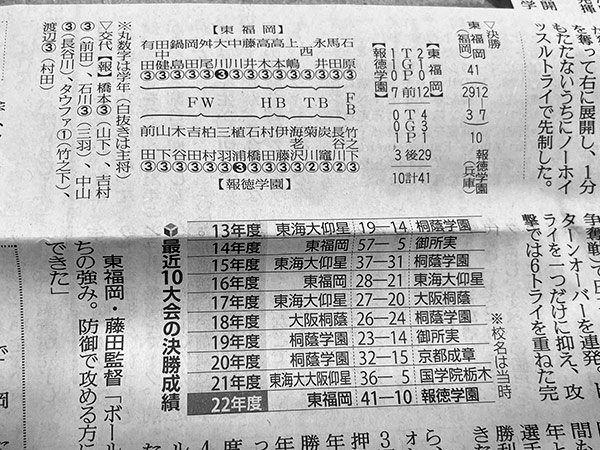 を奪って右に展開し、1分
もたたないうちにノーホイ
ッスルトライで先制した。
▽決勝
東福岡(福岡) 41 29 12 ― 3 7 10 報徳学園(兵庫)
【東福岡】
2 1 0 12 4 3 1 29 41
T G P 前 T G P 後 計
1 1 0 7 0 0 1 3 10
【報徳学園】
【東福岡】
石原③
馬田③
西③
永井③
上嶋③
高本③
高木③
藤井③
中川③
大川❸
舛尾③
岡田③
鍋島③
田中健③
有田③
FB
TB
HB
FW
竹之下
長谷川
炭竈
菊川
海老沢
伊藤
村田
石橋
植浦
三羽
柏村
吉田
木谷
山下
前田
【報徳学園】
※丸数字は学年(白抜きは主将)
▽交代【報】橋本③(山下)、吉村
③(前田)、石川③(三羽)、中山
③(長谷川)、タウファ①(竹之下)、
渡辺③(村田)
最近10大会の決勝成績
13年度 東海大仰星 19―14 桐蔭学園
14年度 東福岡 57―5 御所実
15年度 東海大仰星 37―31 桐蔭学園
16年度 東福岡 28―21 東海大仰星
17年度 東海大仰星 27―20 大阪桐蔭
18年度 大阪桐蔭 26―24 桐蔭学園
19年度 桐蔭学園 23―14 御所実
20年度 桐蔭学園 32―15 京都成章
21年度 東海大大阪仰星 36―5 国学院栃木
22年度 東福岡 41―10 報徳学園
※校名は当時
ターンオーバーを連発。
ライを一つだけに抑え、攻
撃では6トライを重ねた完
東福岡・藤田監督「ボール
ちの強み。防御で攻める方に
できた」